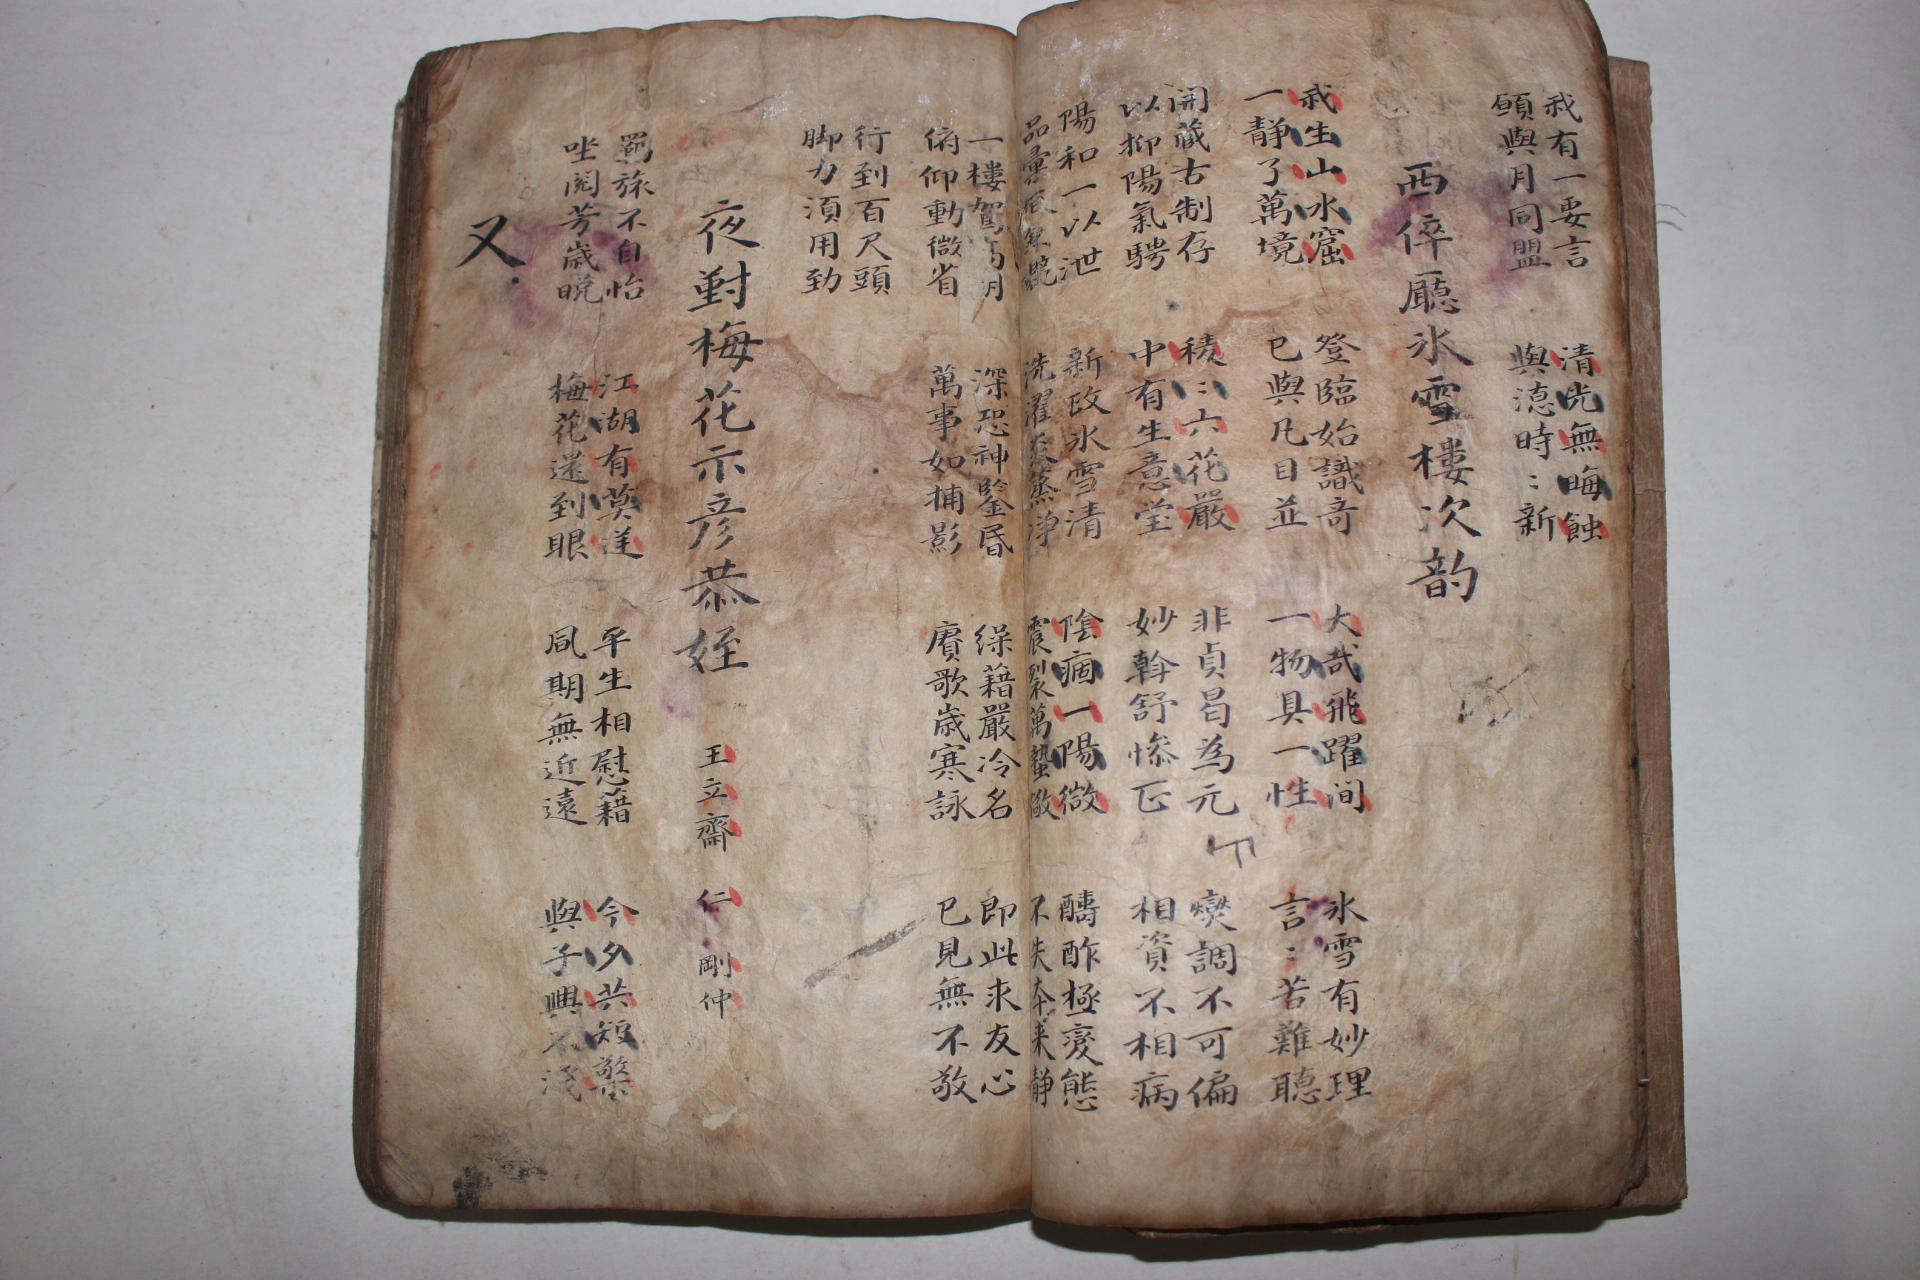 我有一要言 清光無晦蝕
願與月同盟 與德時〻新
西倅廳氷雪樓次韵
我生山水窟 登臨始識奇 大哉飛躍间 氷雪有妙理
一静了萬境 已與凡目並 一物具一性 言〻若難聽
開蔵古制存 稜〻六花嚴 非貞曷為元 燮調不可偏
以抑陽氣騁 中有生意瑩 妙斡舒惨正 相資不相病
陽和一以泄 新政氷雪清 陰痼一陽微 醻酢極変態
品彙 洗濯炎蒸浄 震裂萬蟄 不失本来静
一樓駕高明 深恐神鑒昏 繰藉嚴冷名 即此求友心
俯仰動微省 萬事如捕影 賡歌歳寒詠 已見無不敬
行到百尺頭
脚力湏用勁
夜對梅花示彦恭姪 王立齋 仁剛仲
羁旅不自怡 江湖有莫逆 平生相慰藉 今夕共短檠
坐閲芳歳晩 梅花還到眼 凮期無近遠 與子興不淺
又